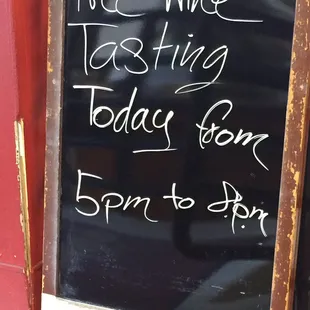 Wine
Tasting
Today from
5pm to 8pm